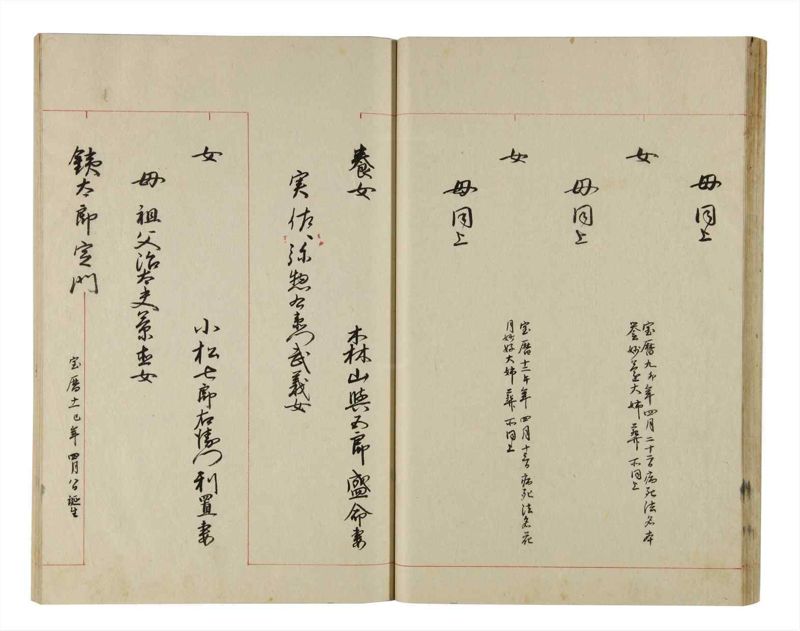 母同上
女
宝暦九卯年四月二十二日病死法名本
誉妙大姉葬所同上
母同上
女
宝暦十二午年四月十三日病死法名花
月妙好大姉葬所同上
母同上
養女
木林山與五郎盛命妻
実佐弥惣右衛門武義女
女
小松七郎右衛門利置妻
母祖父治太夫景女
銕太郎定門
宝暦十一巳年四月誕生